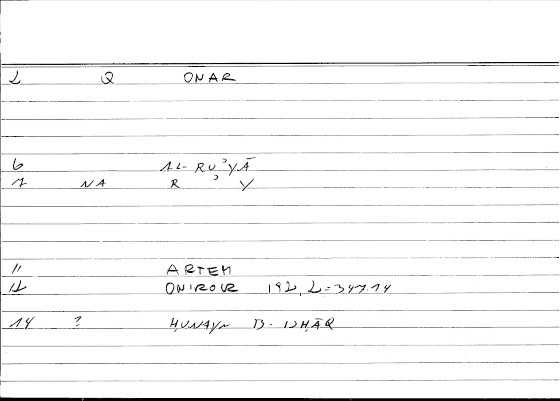 2 Q ONAR
6 AL-RUʾYĀ
7 NA R ʾ Y
11 ARTEM
12 ONIROCR 192,2-347.14
14 ? ḤUNAYN B. ISḤĀQ